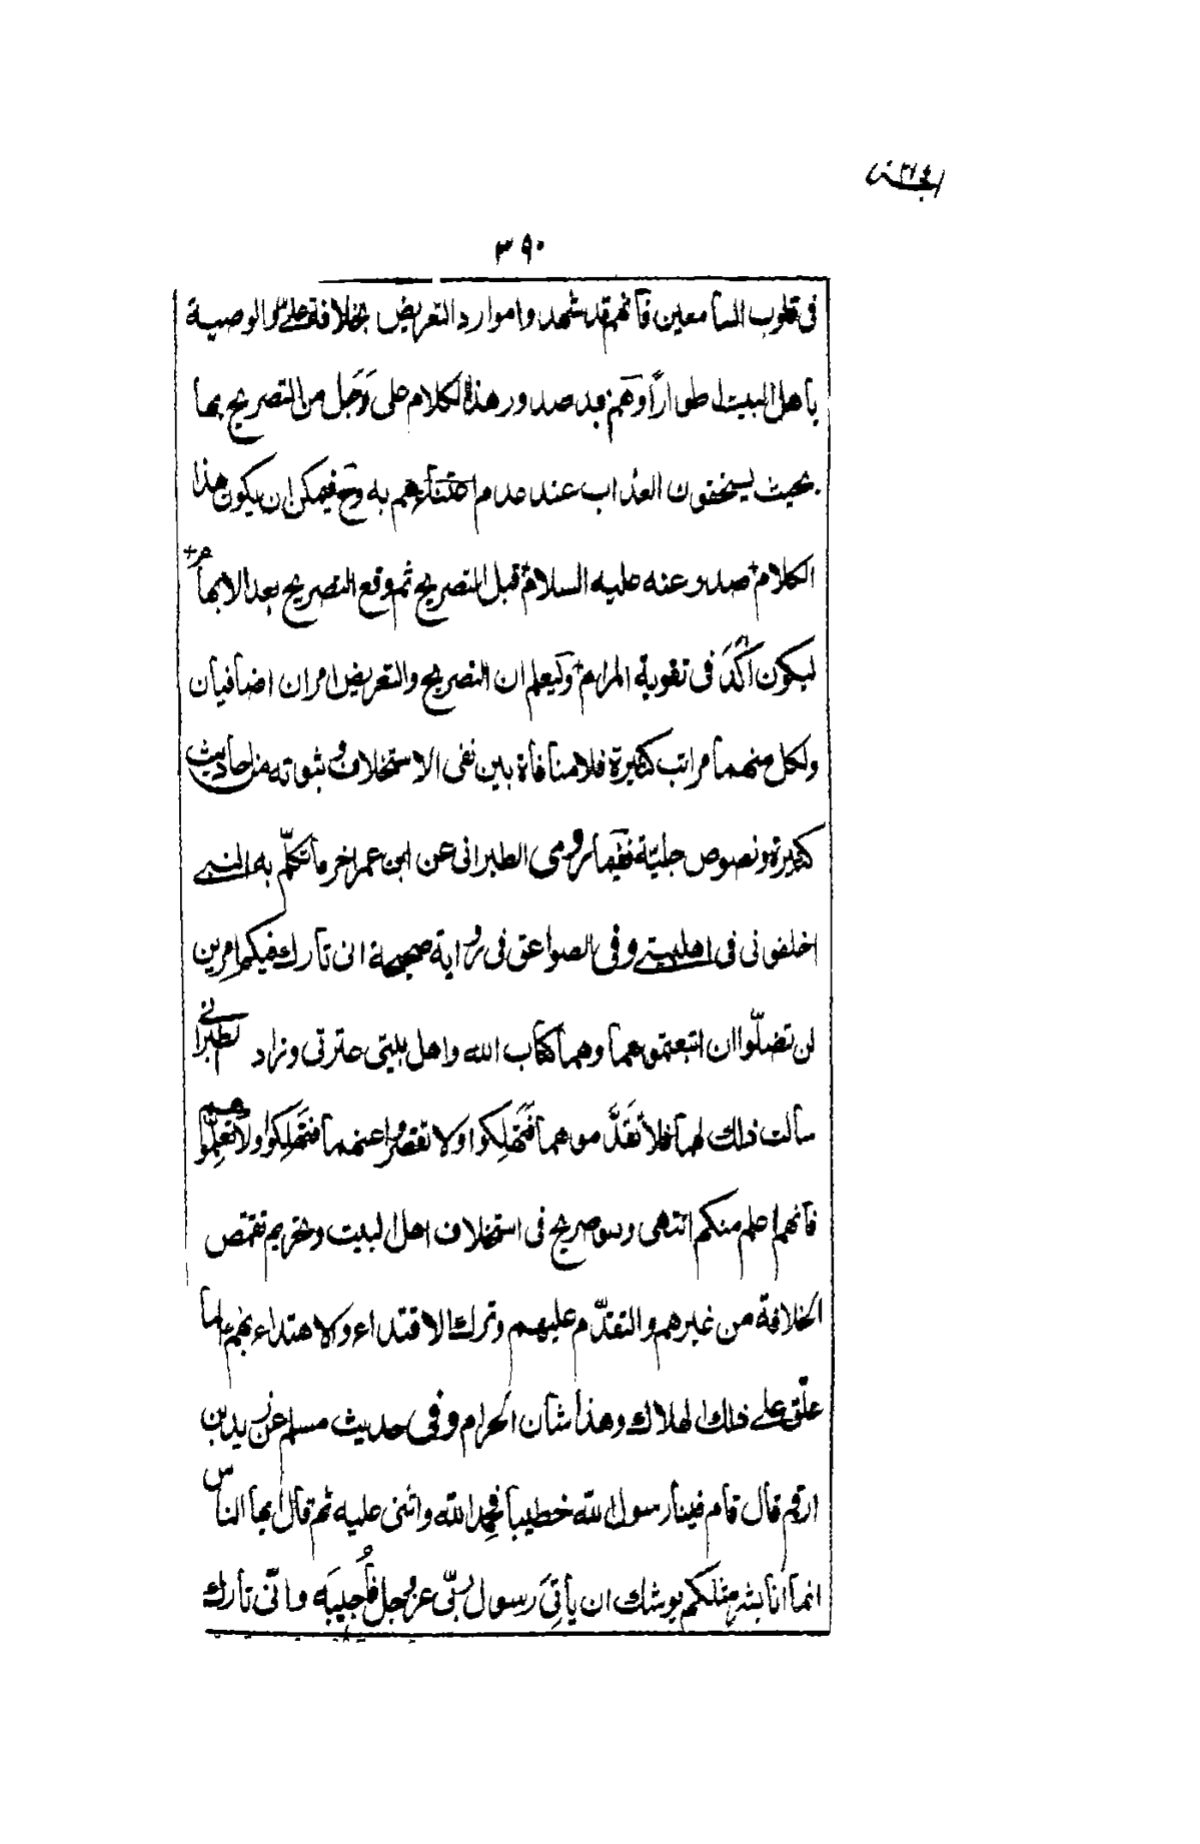 ٣٩٠
فى قلوب السامعين فانهم قد شهدوا موارد التعريض بخلافة علىّ والوصية
باهل البيت اطوارًا وهم بعد صدور هذا الكلام على وَجَل من التصريح بها
بحيث يستحقون العذاب عند عدم اعتنائهم به وح فيمكن ان يكون هذا
الكلام صدر عنه عليه السلام قبل التصريح ثم وقع التصريح بعد الابهام
ليكون اٰكَدَ فى تقوية المرام وليعلم ان التصريح والتعريض امران اضافيان
ولكل منهما مراتب كثيرة فلا منافاة بين نفى الاستخلاف وثبوته من احاديث
كثيرة ونصوص جليّة ففيما روى الطبرانى عن ابن عمر اخر ما تكلّم به النبى
اخلفونى فى اهلبيتى وفى الصواعق فى رواية صحيحة انى تارك فيكم امرين
لن تضلّوا ان اتبعتموهما وهما كتاب الله واهل بيتى عترتى وزاد الطبرانى
سألت ذلك لهما فلا تَقَدَّموهما فَتَهلِكوا ولا تقصروا عنهما فتهلِكوا ولا تعلِّموهم
فانهم اعلم منكم انتهى وهو صريح فى استخلاف اهل البيت وتحريم تقمّص
الخلافة من غيرهم والتقدّم عليهم وترك الاقتداء والاهتداء بهم لما
علّق على ذلك الهلاك وهذا شأن الحرام وفى حديث مسلم عن زيد بن
ارقم قال قام فينا رسول الله خطيبا فحمد الله واثنى عليه ثم قال ايها الناس
انما انا بشر مثلكم يوشك ان يأتِىَ رسول ربّى عز وجل فاُجيبَه وانّى تارك